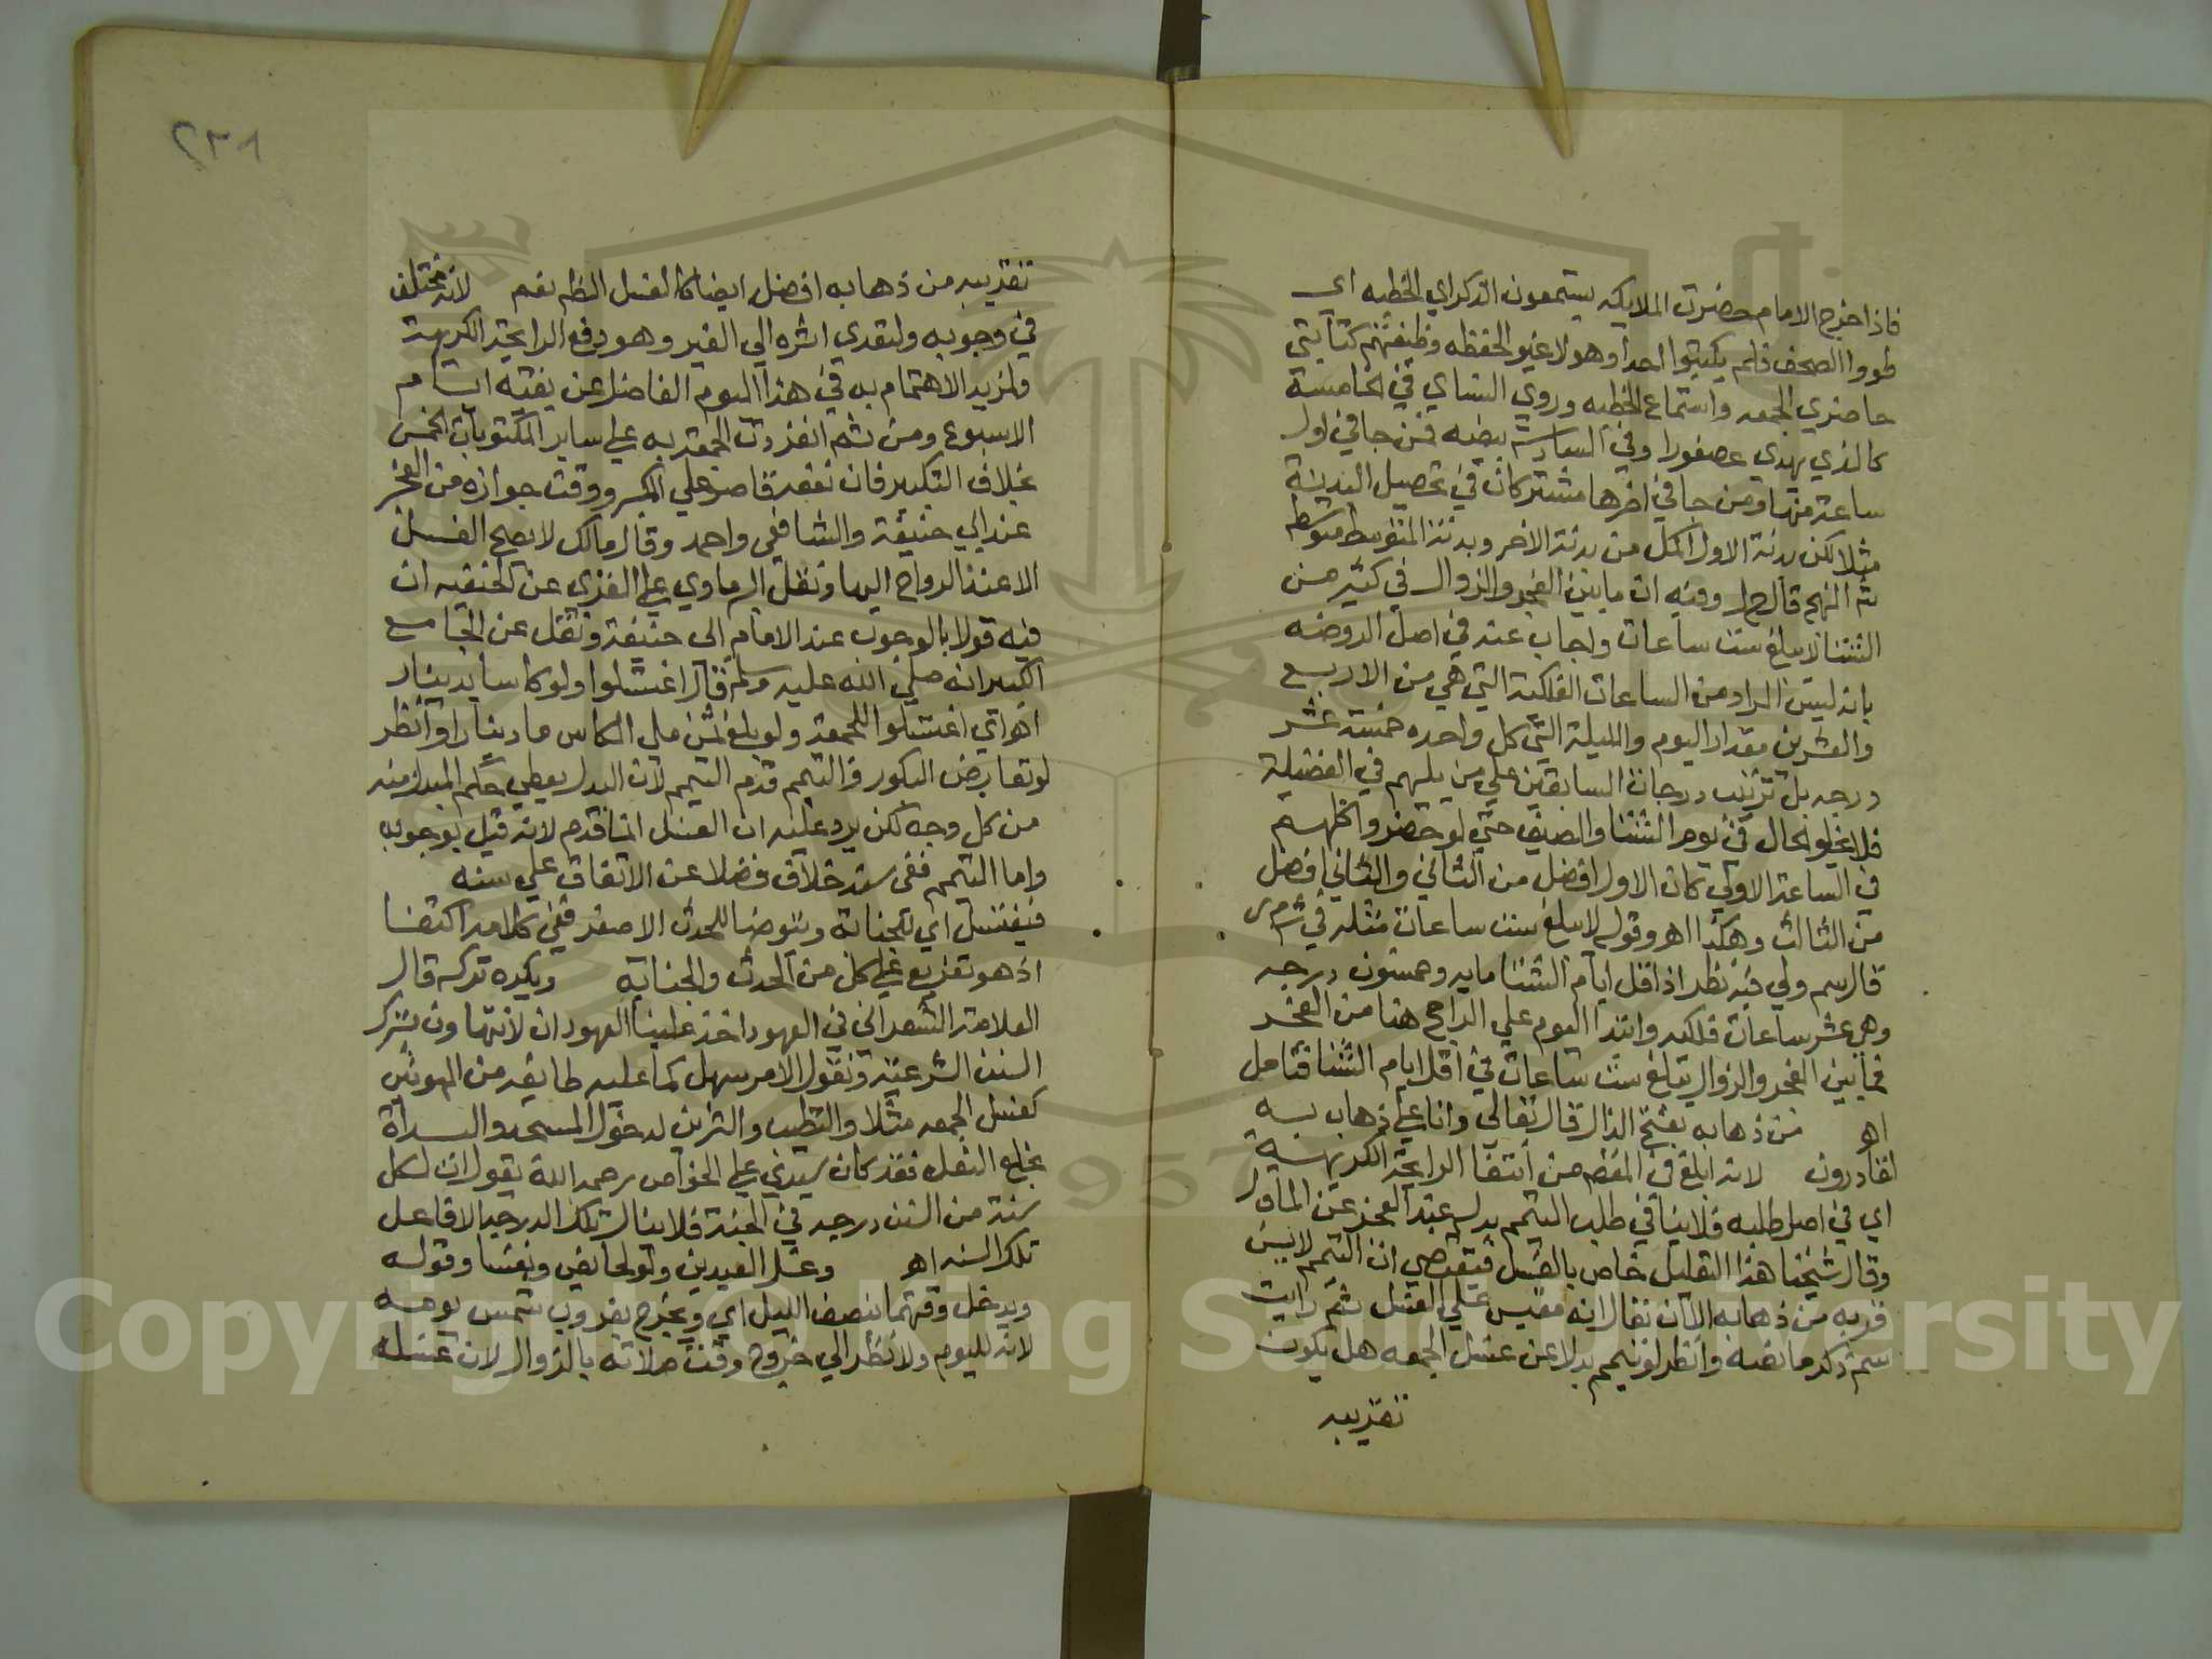 فاذا خرج الامام حضرت الملايكه يستمعون الذكر اي الخطبه اي
طووا الصحف فلم يكتبوا احدا وهولا غير الحفظه وظيفتهم كتابتي
حاضري الجمعه واستماع الخطبه وروي النساي في الخامسة
كالذي يهدي عصفورا وفي السادسة بيضه فمن جا في اول
ساعة منها ومن جا في اخرها مشتركان في تحصيل البدنة
مثلا لكن بدنة الاول اكمل من بدنة الاخر وبدنة المتوسط متوسطه
شه المنهج قال ح ل وفيه ان ما بين الفجر والزوال في كثير من
الشتا لا يبلغ ست ساعات واجاب عنه في اصل الروضه
بانه ليس المراد من الساعات الفلكية التي هي من الاربع
والعشرين مقدار اليوم والليلة التي كل واحده خمسة عشر
درجه بل ترتيب درجات السابقين علي من يليهم في الفضيلة
فلا يخلو الحال في يوم الشتا والصيف حتي لو حضروا كلهم
في الساعة الاولي كان الاول افضل من الثاني والثاني افضل
من الثالث وهكذا اهـ وقوله لا يبلغ ست ساعات مثله في ش م ر
قال سم ولي فيه نظر اذ اقل ايام الشتا مايه وخمسون درجه
وهي عشر ساعات فلكيه وابتدا اليوم علي الراجح هنا من الفجر
فما بين الفجر والزوال يبلغ ست ساعات في اقل ايام الشتا فتامل
اهـ من ذهابه بفتح الذال قال تعالي وانا علي ذهاب به
لقادرون لانه ابلغ في المقصود من انتفا الرايحة الكريهة
اي في اصل طلبه فلا ينافي طلب التيمم بدله عند العجز عن الما
وقال شيخنا هذا التعليل خاص بالغسل فيقتضي ان التيمم لا يسن
قربه من ذهابه الا ان نقال انه مقيس علي الغسل ثم رايت
سم ذكر ما نصه وانظر لو تيمم بدلا عن غسل الجمعه هل يكون
تقريبه
٢٣٨
تقريبه من ذهابه افضل ايضا كالغسل الظ نعم لانه مختلف
في وجوبه ولتعدي اثره الي الغير وهو دفع الرايحة الكريهة
ولمزيد الاهتمام به في هذا اليوم الفاضل عن بقية ايام
الاسبوع ومن ثم انفردت الجمعة به علي ساير المكتوبات الخمس
بخلاف التكبير فان نفعه قاصر علي المكبر ووقت جوازه من الفجر
عند ابي حنيفة والشافعي واحمد وقال مالك لا يصح الغسل
الا عند الرواح اليها ونقل البرماوي علي الغزي عن الحنفيه ان
فيه قولا بالوجوب عند الامام ابي حنيفة ونقل عن الجامع
الكبير انه صلي الله عليه وسلم قال اغتسلوا ولو كاسا بدينار
اهـ اي اغتسلوا للجمعة ولو بلغ ثمن ملي الكاس ما دينارا وانظر
لو تعارض البكور والتيمم قدم التيمم لان البدل يعطي حكم المبدل منه
من كل وجه لكن يرد عليه ان الغسل انما قدم لانه قيل بوجوبه
واما التيمم ففي سنه خلاف فضلا عن الاتفاق علي سنه
فيغتسل اي للجنابة ويتوضا للحدث الاصغر ففي كلامه اكتفا
اذ هو تفريع علي كل من الحدث والجنابه ويكره تركه قال
العلامة الشعراني في العهود اخذ علينا العهود ان لا نتهاون بترك
السنن الشرعية ونقول الامر سهل كما عليه طايفه من المهونين
كغسل الجمعه مثلا والتطيب والتزين لدخول المسجد والبداة
بخلع النعل فقد كان سيدي علي الخواص رحمه الله يقول ان لكل
سنة من السنن درجه في الجنة فلا ينال تلك الدرجه الا فاعل
تلك السنه اهـ وغسل العيدين ولو لحايض ونفسا وقوله
ويدخل وقتهما بنصف الليل اي ويخرج بغروب شمس يومه
لانه لليوم ولا نظر الي خروج وقت صلاته بالزوال لان غسله
Copyright © King Saud University
1957